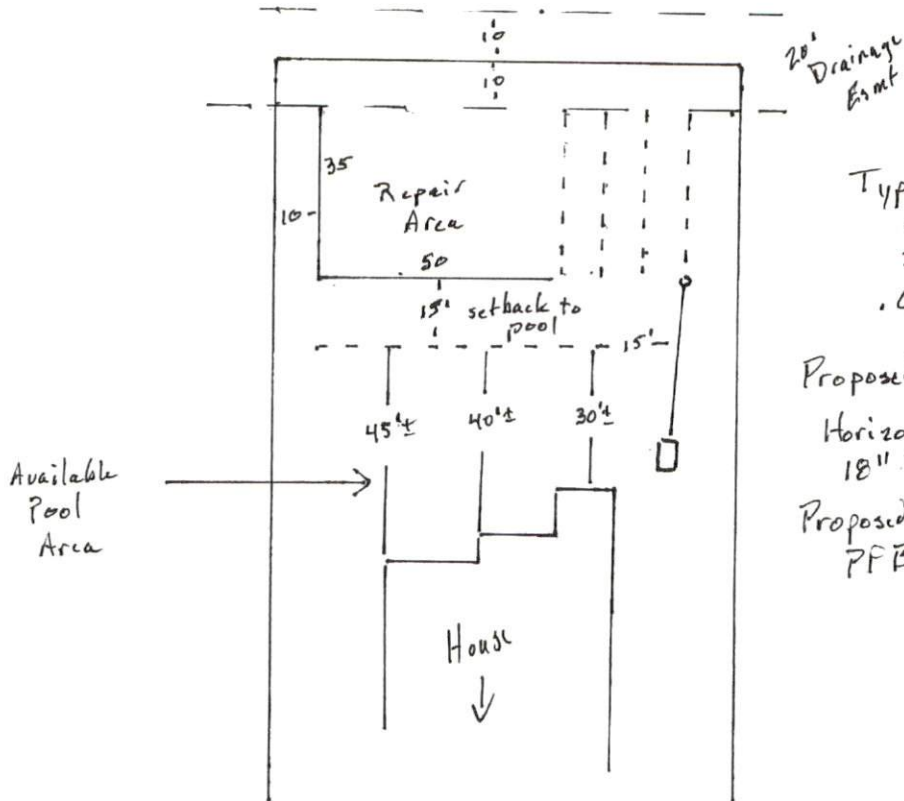 10'
10
20'
Drainage
Esmt
35
10-
Repair
Area
50
15'
setback to
pool
15'
45'±
40'±
30'±
Available
Pool
Area
House
Typ
Proposed
Horizo
18"
Proposed
PFB